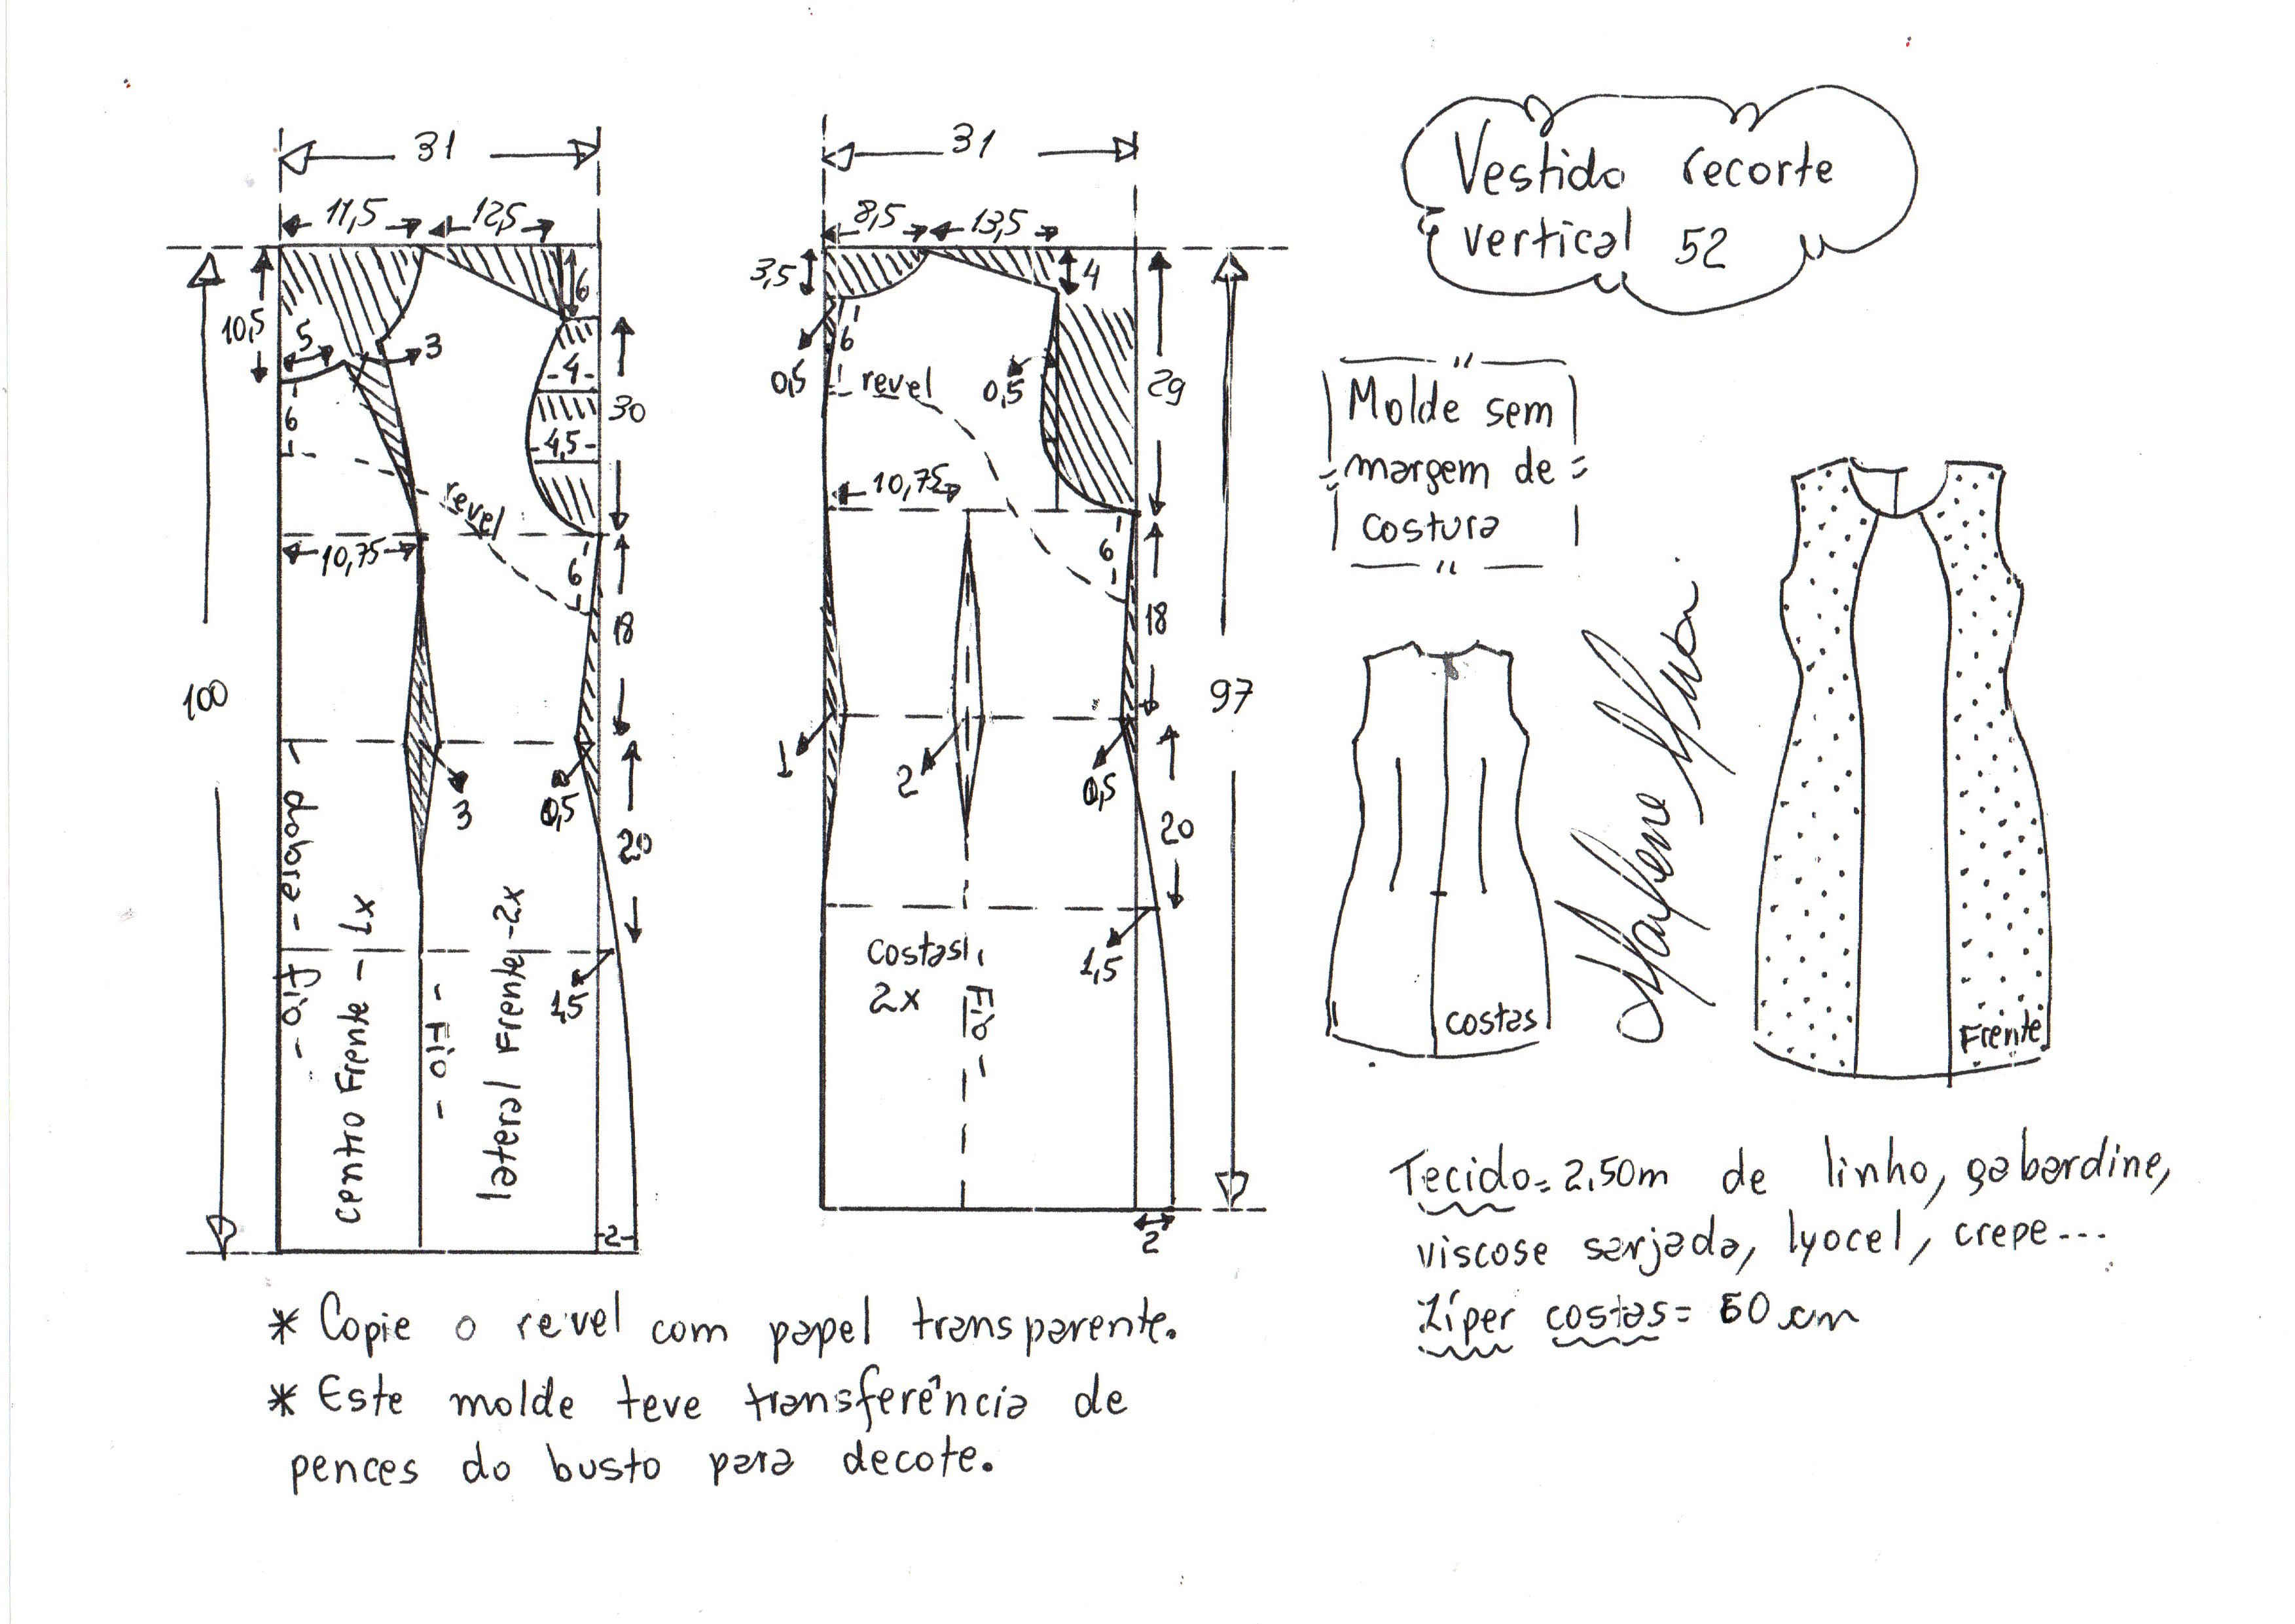 31
11,5
12,5
6
10,5
5
3
4
30
6
4,5
revel
10,75
6
18
100
3
0,5
20
dobra
Fio
centro Frente - 1x
Fio
lateral Frente - 2x
1,5
2
31
8,5
13,5
3,5
4
6
0,5
revel
0,5
29
10,75
6
18
97
1
2
0,5
20
Costas
2x
Fio
1,5
2
Vestido recorte
vertical 52
Molde sem
margem de
costura
costas
Frente
Tecido = 2,50m de linho, gabardine,
viscose sarjada, lyocel, crepe...
Zíper costas = 60 cm
* Copie o revel com papel transparente.
* Este molde teve transferência de
pences do busto para decote.